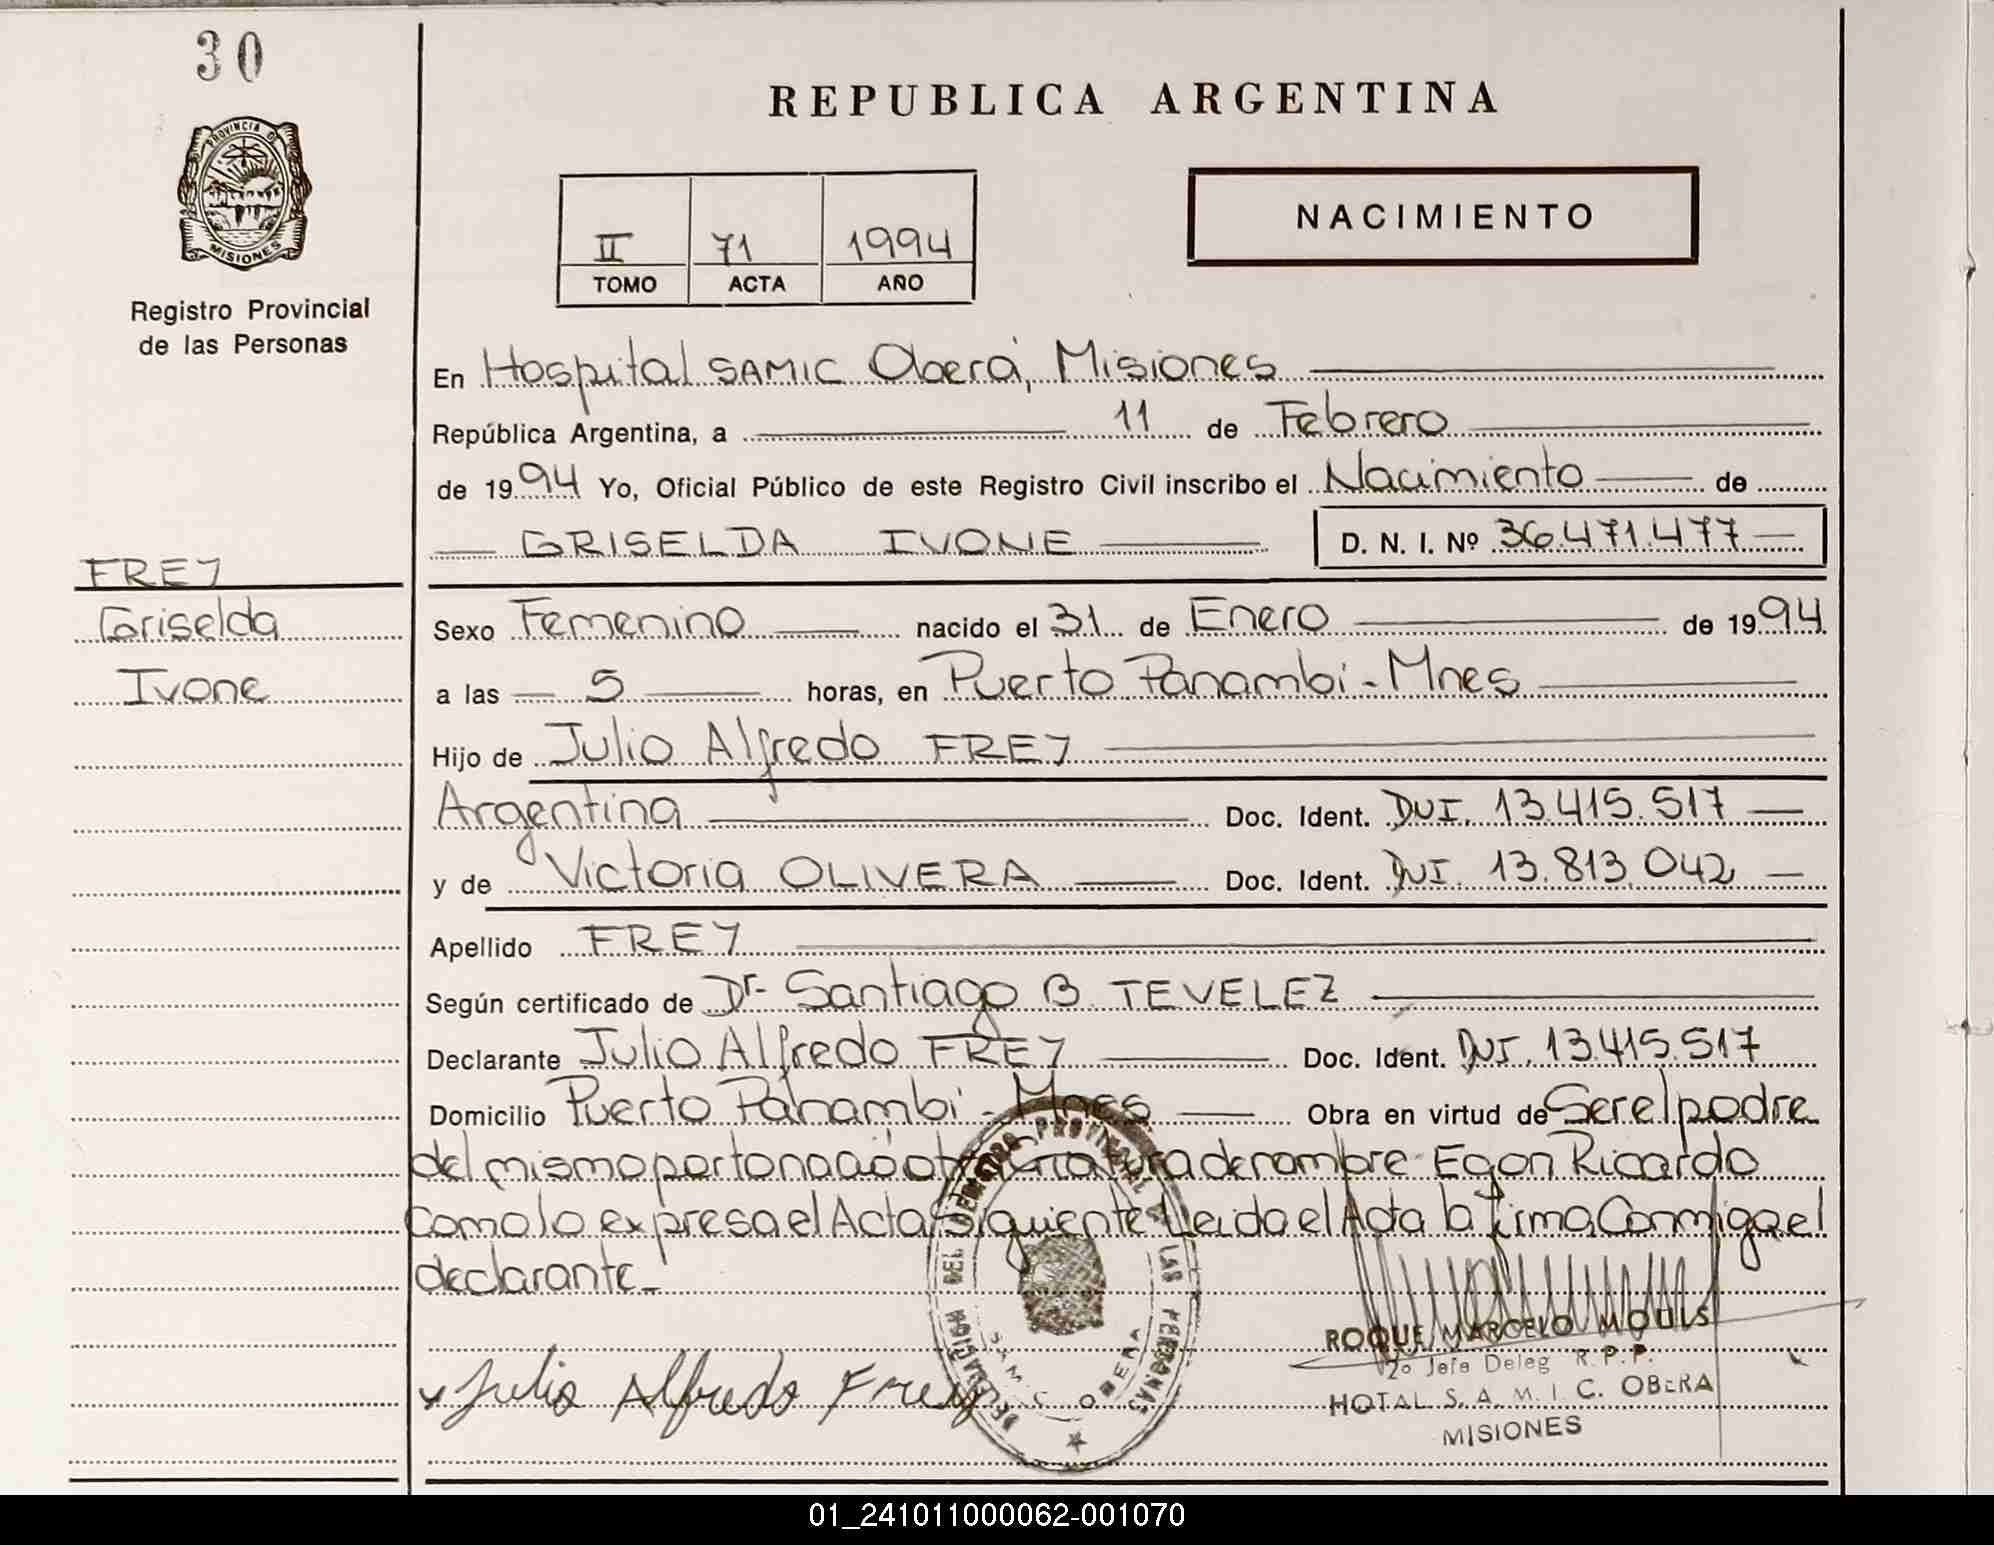 30
PROVINCIA D
MISIONES
Registro Provincial
de las Personas
REPUBLICA ARGENTINA
II 71 1994
TOMO ACTA AÑO
NACIMIENTO
En Hospital SAMIC Oberá, Misiones
República Argentina, a 11 de Febrero
de 1994 Yo, Oficial Público de este Registro Civil inscribo el Nacimiento de
GRISELDA IVONE D. N. I. Nº 36.471.477
FREY
Griselda
Ivone
Sexo Femenino nacido el 31 de Enero de 1994
a las 5 horas, en Puerto Panambi - Mnes
Hijo de Julio Alfredo FREY
Argentina Doc. Ident. DNI. 13.415.517
y de Victoria OLIVERA Doc. Ident. DNI. 13.813.042
Apellido FREY
Según certificado de Dr. Santiago B. TEVELEZ
Declarante Julio Alfredo FREY Doc. Ident. DNI. 13.415.517
Domicilio Puerto Panambi - Mnes Obra en virtud de Ser el padre
del mismo parto nació de nombre Egon Ricardo
Como lo expresa el Acta Siguiente Leida el Acta la firma Conmigo el
declarante
Julio Alfredo Frey
DELEGACION DEL REGISTRO PROVINCIAL DE LAS PERSONAS
S.A.M.I.C. OBERA
ROQUE MARCELO MOULS
2º Jefe Deleg R.P.P.
HOTAL S. A. M. I. C. OBERA
MISIONES
01_241011000062-001070